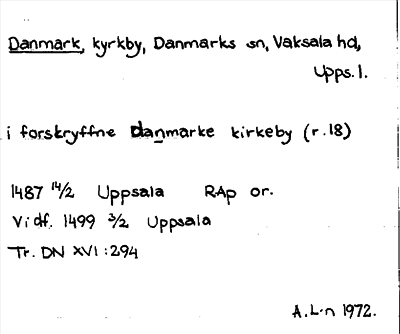 Danmark, kyrkby, Danmarks sn, Vaksala hd,
Upps. l.
i forskryffne danmarke kirkeby (r.18)
1487 14/2 Uppsala RAp or.
Vidf. 1499 3/2 Uppsala
Tr. DN XVI:294
A.L-n 1972.